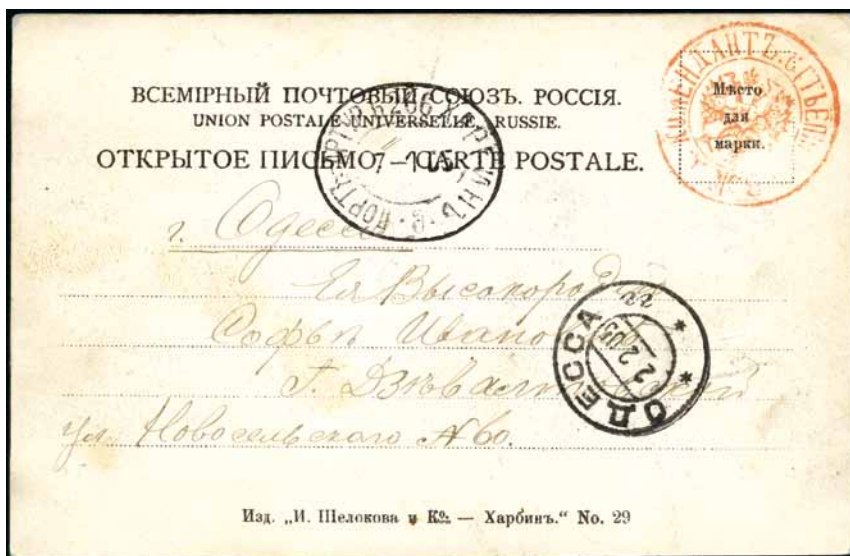 ВСЕМІРНЫЙ ПОЧТОВЫЙ СОЮЗЪ. РОССІЯ.
UNION POSTALE UNIVERSELLE. RUSSIE.
ОТКРЫТОЕ ПИСЬМО — CARTE POSTALE.
Мѣсто
для
марки.
г. Одесса
Ея Высокородію
Софьѣ Ивановнѣ
ул. Новосельскаго № 60.
ОДЕССА
2 2 05
Изд. „И. Щелокова и Ко. — Харбинъ.“ No. 29